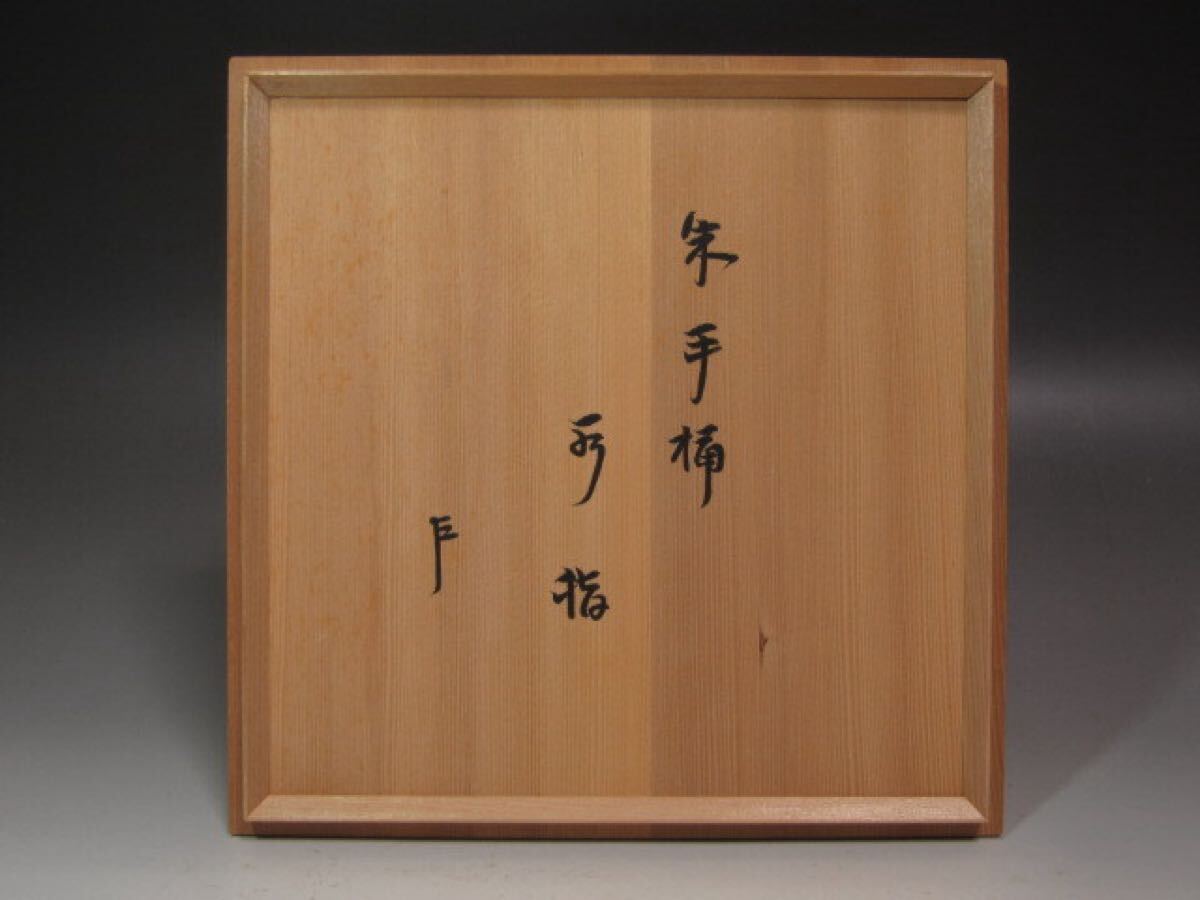 朱手桶
水指